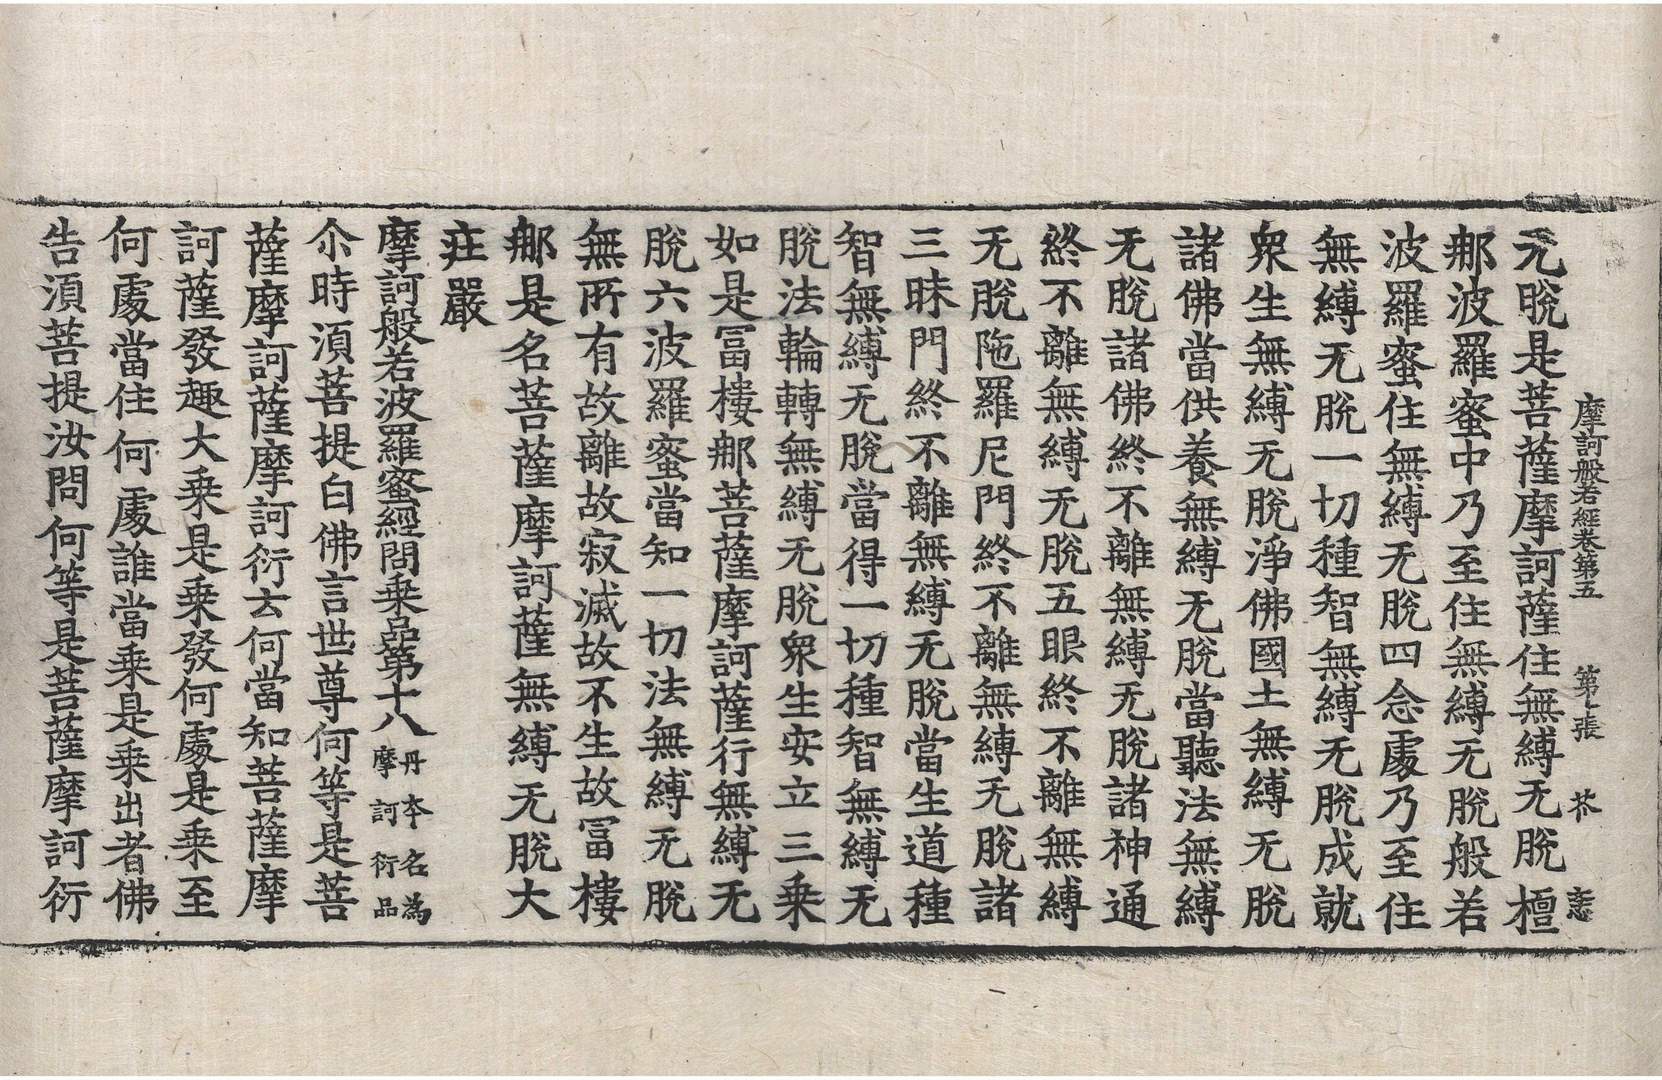 摩訶般若經卷第五 第七張 芥 志
无脫是菩薩摩訶薩住無縛无脫檀
那波羅蜜中乃至住無縛无脫般若
波羅蜜住無縛无脫四念處乃至住
無縛无脫一切種智無縛无脫成就
衆生無縛无脫淨佛國土無縛无脫
諸佛當供養無縛无脫當聽法無縛
无脫諸佛終不離無縛无脫諸神通
終不離無縛无脫五眼終不離無縛
无脫陁羅尼門終不離無縛无脫諸
三昧門終不離無縛无脫當生道種
智無縛无脫當得一切種智無縛无
脫法輪轉無縛无脫衆生安立三乗
如是冨樓那菩薩摩訶薩行無縛无
脫六波羅蜜當知一切法無縛无脫
無所有故離故寂滅故不生故冨樓
那是名菩薩摩訶薩無縛无脫大
莊嚴
摩訶般若波羅蜜經問乗品第十八 丹本名為摩訶衍品
尒時湏菩提白佛言世尊何等是菩
薩摩訶薩摩訶衍云何當知菩薩摩
訶薩發趣大乗是乗發何處是乗至
何處當住何處誰當乗是乗出者佛
告湏菩提汝問何等是菩薩摩訶衍